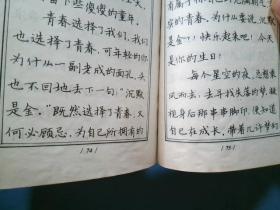 留下些傻傻的童年。
青春选择了我们,我们
也选择了青春,可年轻的你
为什么一副老成的面孔,头
也不回地丢下一句:“沉默
是金。”既然选择了青春,又
何必顾忌,为自己所拥有的
74
实的青春,为什么要说,沉默
是金?!快乐起来吧!今天
是你的生日!
每个星空的夜,总想
风而去,去寻找失落的梦,
视身后那串串脚印,便知道
自己在成长,带着几许梦幻
75